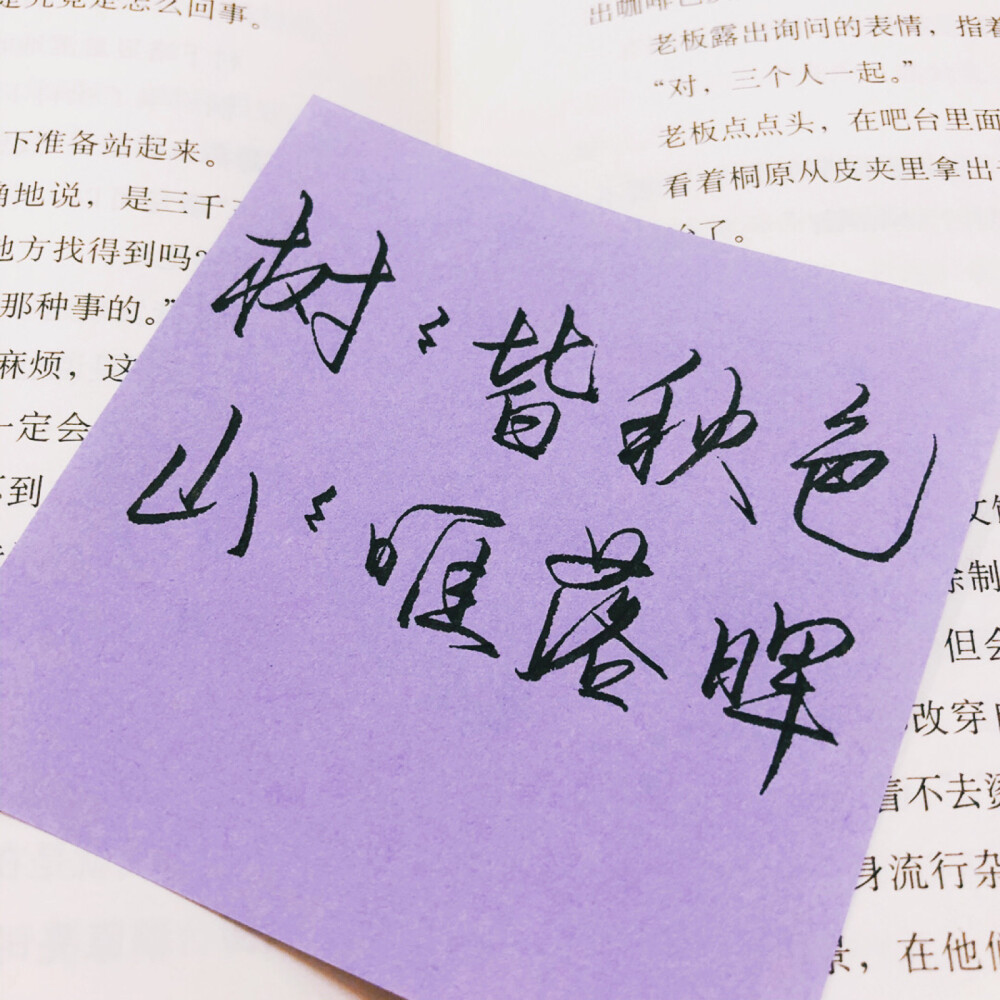 是究竟是怎么回事。
下准备站起来。
确地说，是三千
地方找得到吗？
那种事的。”
麻烦，这
一定会
不到
树〻皆秋色
山〻唯落晖
老板露出询问的表情，指着
“对，三个人一起。”
老板点点头，在吧台里面
看着桐原从皮夹里拿出
台了。
制
但会
改穿
着不去烫
身流行杂
景，在他们